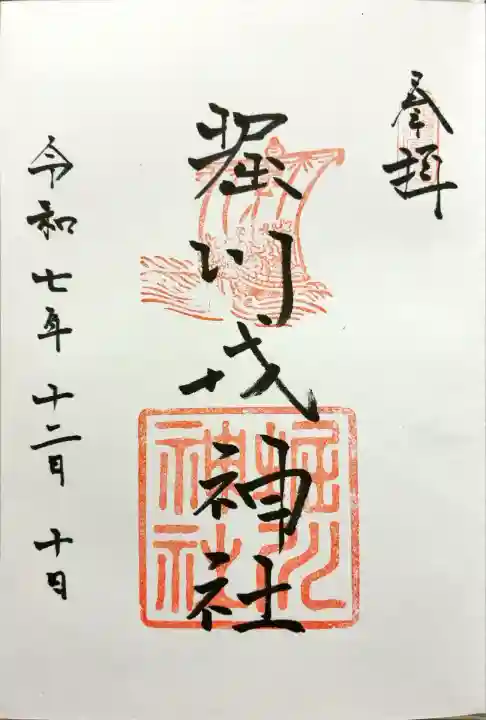 奉拝
堀川戎神社
堀川神社
令和七年十二月十日